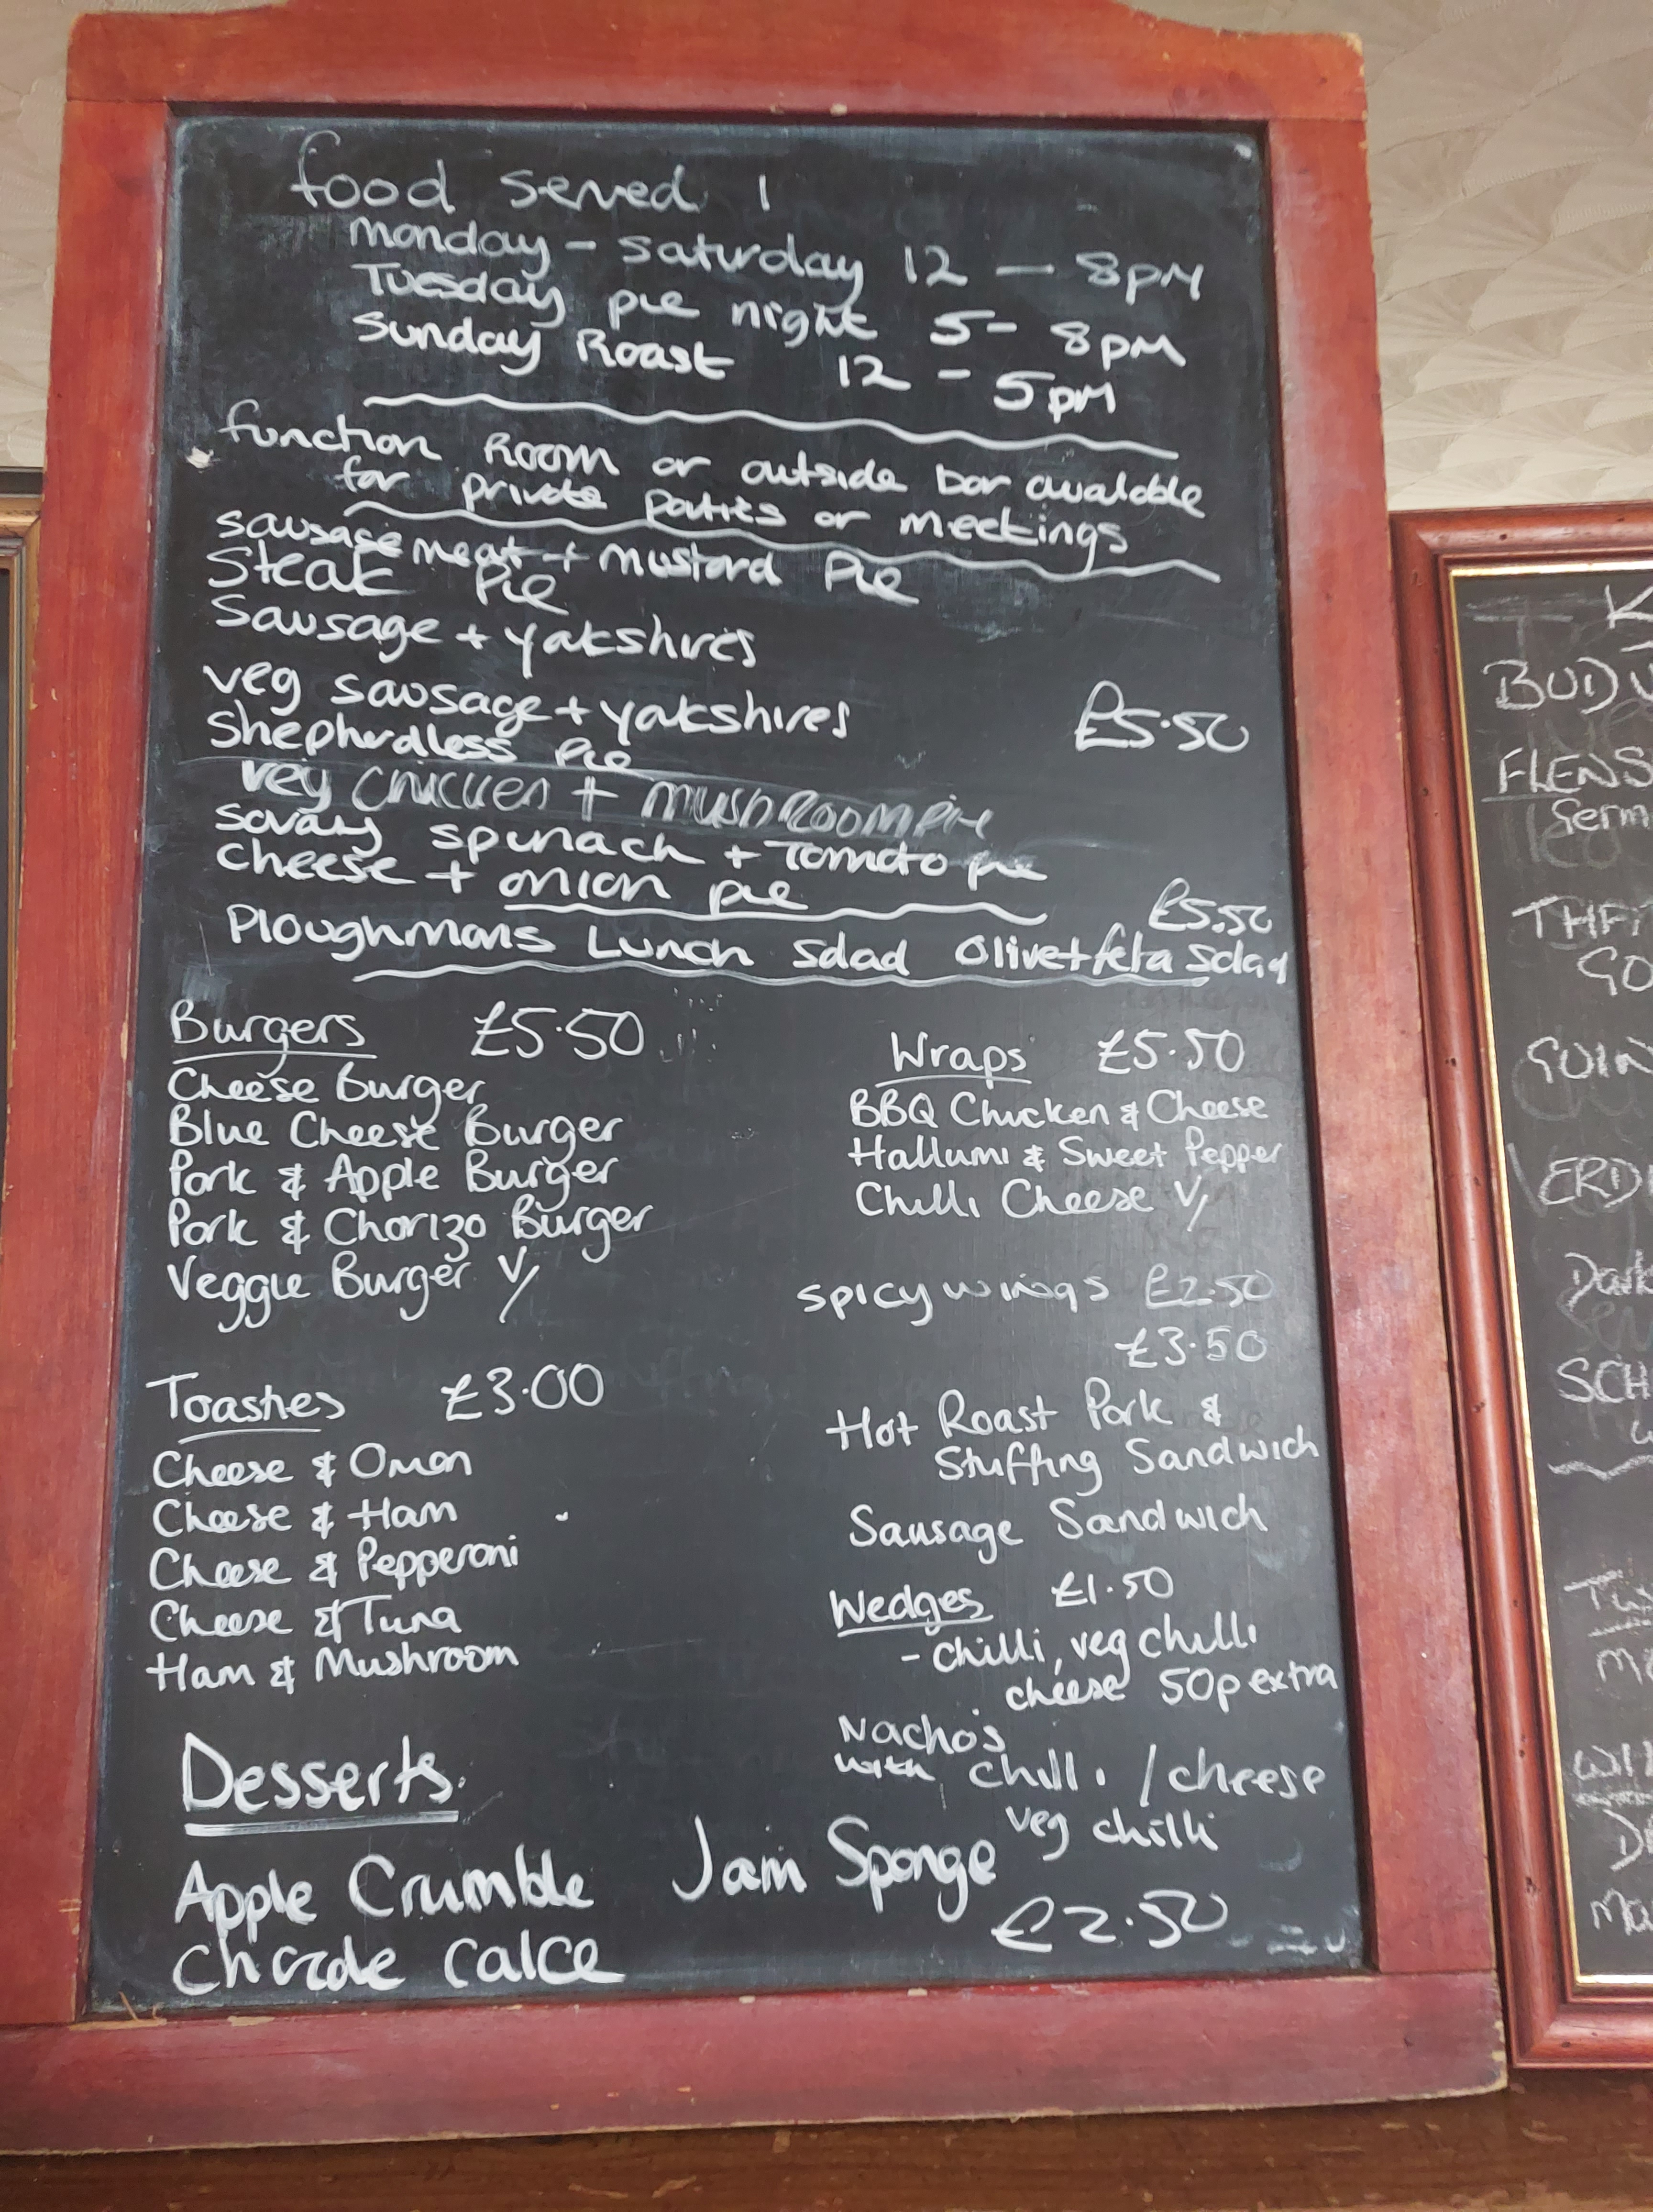 food served
monday - saturday 12 — 8pm
Tuesday pie night 5 - 8pm
Sunday Roast 12 - 5pm
function Room or outside bar available
for private parties or meetings
sausage meat + mustard Pie
Steak Pie
Sausage + yorkshires
veg sausage + yorkshires £5.50
Shepherdless Pie
veg chicken + mushroom pie
savary spinach + Tomato pie
cheese + onion pie
£5.50
Ploughmans Lunch Salad Olive + feta salad
Burgers £5.50
Cheese Burger
Blue Cheese Burger
Pork & Apple Burger
Pork & Chorizo Burger
Veggie Burger V/
Toasties £3.00
Cheese & Onion
Cheese & Ham
Cheese & Pepperoni
Cheese & Tuna
Ham & Mushroom
Wraps £5.50
BBQ Chicken & Cheese
Hallumi & Sweet Pepper
Chilli Cheese V/
spicy wings £2.50
£3.50
Hot Roast Pork &
Stuffing Sandwich
Sausage Sandwich
Wedges £1.50
- chilli, veg chilli
cheese 50p extra
Nacho's
with chilli / cheese
veg chilli
Desserts
Apple Crumble Jam Sponge
£2.50
BUD
FLENS
Germ
GO
Dark
SCH